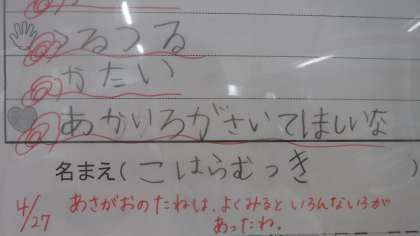 つるつる
かたい
あかいろがさいてほしいな
名まえ(こはらむつき)
4/27 あさがおのたねは、よくみるといろんないろが
あったね。